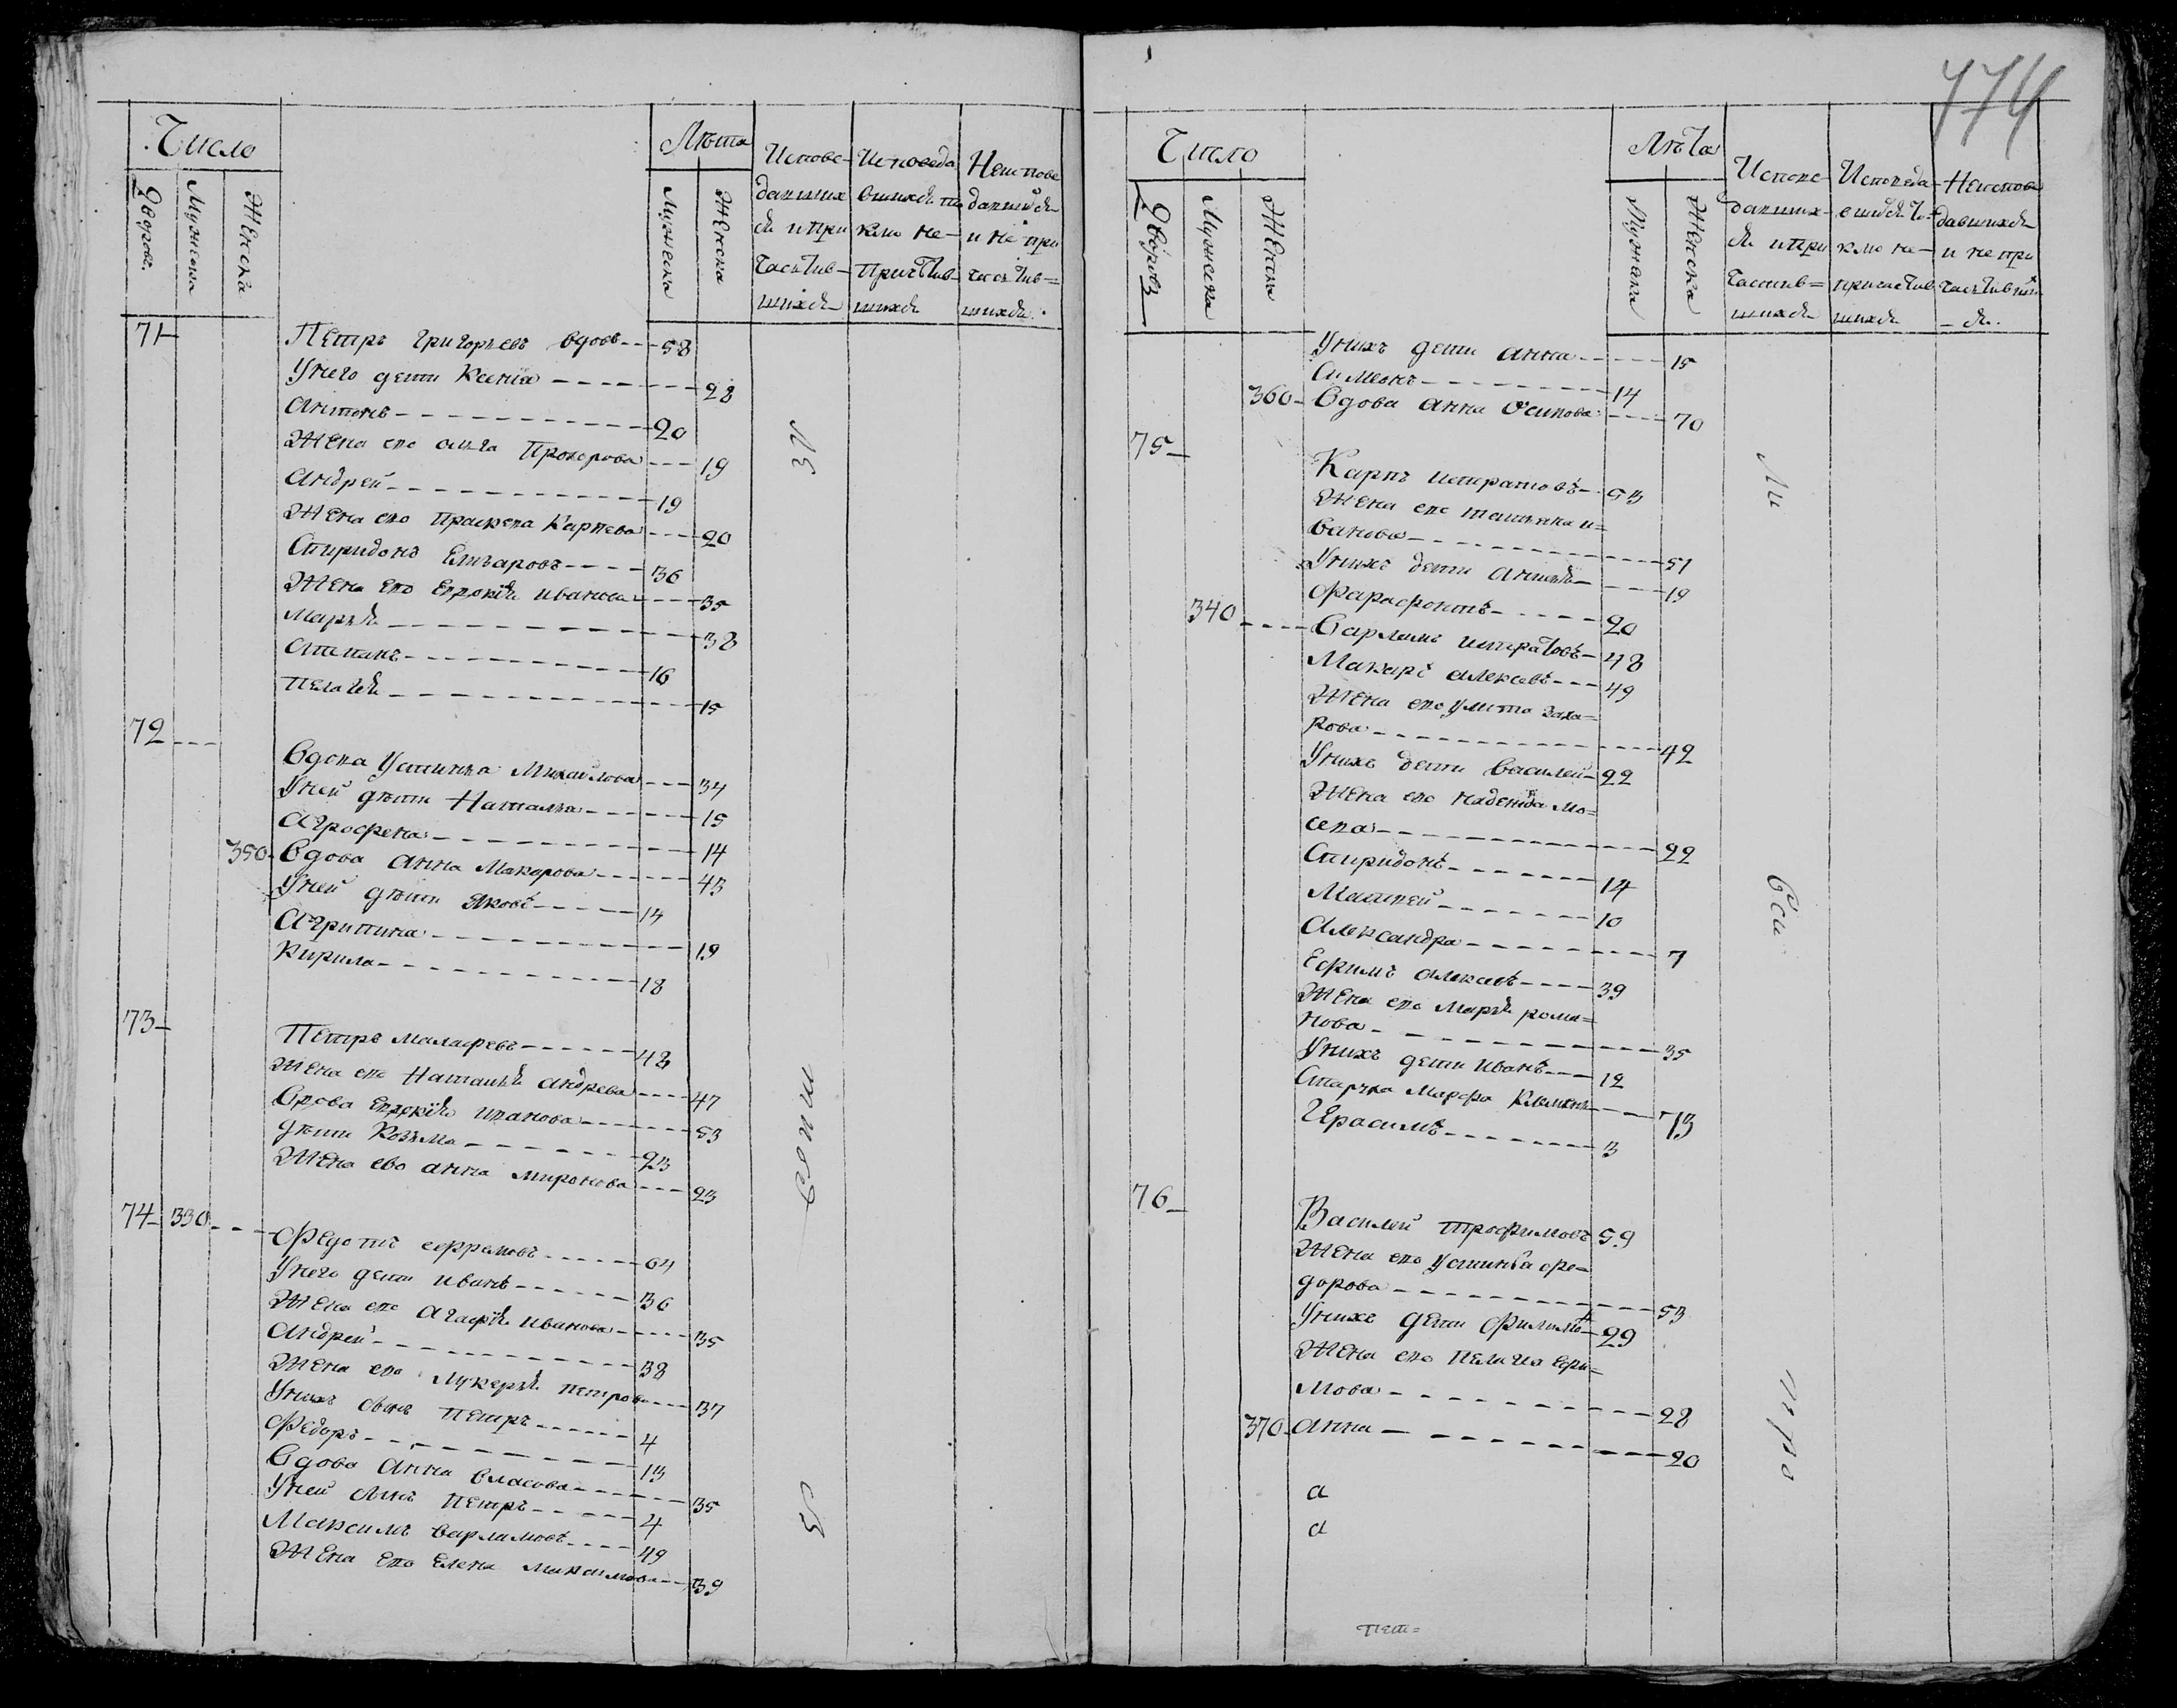 Число
Лѣта
Дворовъ.
Мужеска
Женска
Мужеска
Женска
Испове-
данших
ся и при
частив-
шихся
Исповеда
вшихся то
кмо не-
Причтив-
шихся
Неиспове
давшихся
и не при
частив=
шихся.
71
Петръ Григорьевъ вдовъ 58
У него дети Ксенiя 28
Антонъ 20
Жена ево Прохорова 19
Андрей 19
Жена ево Прасковя Карпова 20
Спиридонъ Елизаровъ 36
Жена ево Евдокiя Иванова 35
Марья 38
Степанъ 16
Пелагея 15
72
Вдова Устинья Михайлова 34
У ней дѣти Наталья 15
Агрофена 14
350 Вдова Анна Макарова 43
У ней дѣти Яковъ 14
Агрипина 19
Кирила 18
73
Петръ Малафеевъ 48
Жена ево Наталья Андреева 47
Вдова Евдокiя Иванова 53
Дѣти Козьма 23
Жена ево Анна Миронова 23
74 330
Федотъ Ефремовъ 64
У него дети Иванъ 36
Жена ево Агафiя Иванова 35
Андрей 38
Жена ево Лукерья Петрова 37
У нихъ сынъ Петръ 4
Федоръ 13
Вдова Анна Власова 35
У ней сынъ Петръ 4
Максимъ Варламовъ 49
Жена ево Елена Максимова 39
774
Число
Лѣта
Дворовъ
Мужеска
Женска
Мужеска
Женска
Испове-
давших-
ся и при
частив=
шихся
Исповеда-
вшихся то-
кмо не-
причастив
шихся
Неиспове
давшихся
и не при
частивших
-ся.
У нихъ дети Анна 15
Симеонъ 14
360 Вдова Анна Осипова 70
75
Карпъ Истратовъ 53
Жена ево Татьяна И=
ванова 51
У нихъ дети Анисья 19
Фарафонтъ 20
340 Варламъ Истратовъ 48
Макаръ Алексеевъ 49
Жена ево Улита Заха=
рова 42
У нихъ дети Василей 22
Жена ево Надежда Мо=
сева 22
Спиридонъ 14
Матвей 10
Александра 7
Ефимъ Алексеевъ 39
Жена ево Марья Рома=
нова 35
У нихъ дети Иванъ 12
Старуха Марфа 73
Герасимъ 3
76
Василей Трофимовъ 59
Жена ево Устинья Фе=
дорова 53
У нихъ дети Филимонъ 29
Жена ево Пелагiя Ефи=
мова 28
370 Анна 20
а
а